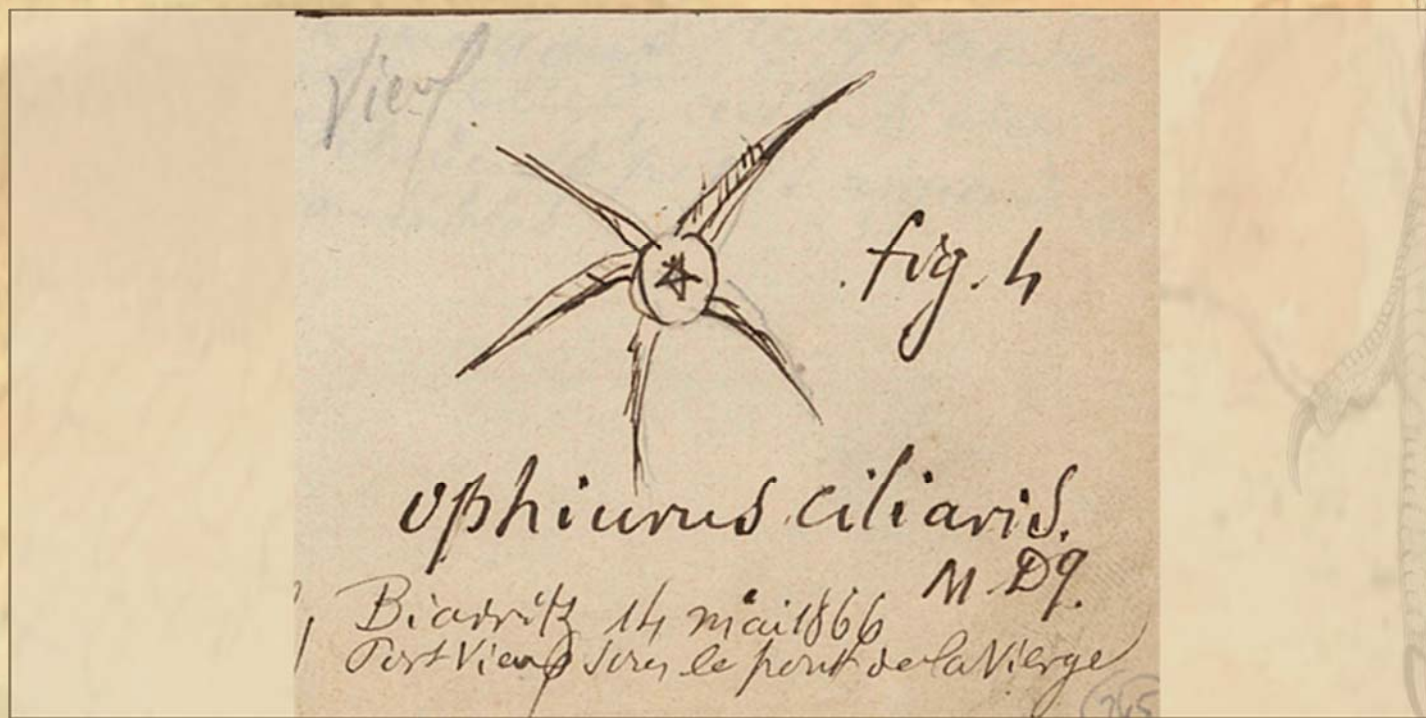 Vieux.
. fig. 4
ophiurus ciliaris.
M. Dq.
Biarritz 14 mai 1866
Port Vieux sous le pont de la Vierge
245